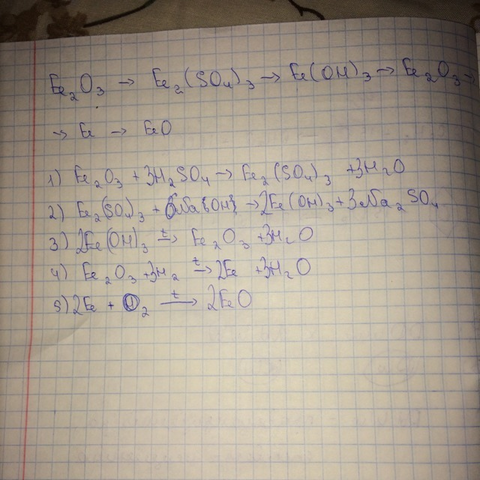 Fe₂O₃ → Fe₂(SO₄)₃ → Fe(OH)₃ → Fe₂O₃ →
→ Fe → FeO
1) Fe₂O₃ + 3H₂SO₄ → Fe₂(SO₄)₃ + 3H₂O
2) Fe₂(SO₄)₃ + 6Na(OH) → 2Fe(OH)₃ + 3Na₂SO₄
3) 2Fe(OH)₃ →ᵗ Fe₂O₃ + 3H₂O
4) Fe₂O₃ + 3H₂ →ᵗ 2Fe + 3H₂O
5) 2Fe + O₂ →ᵗ 2FeO